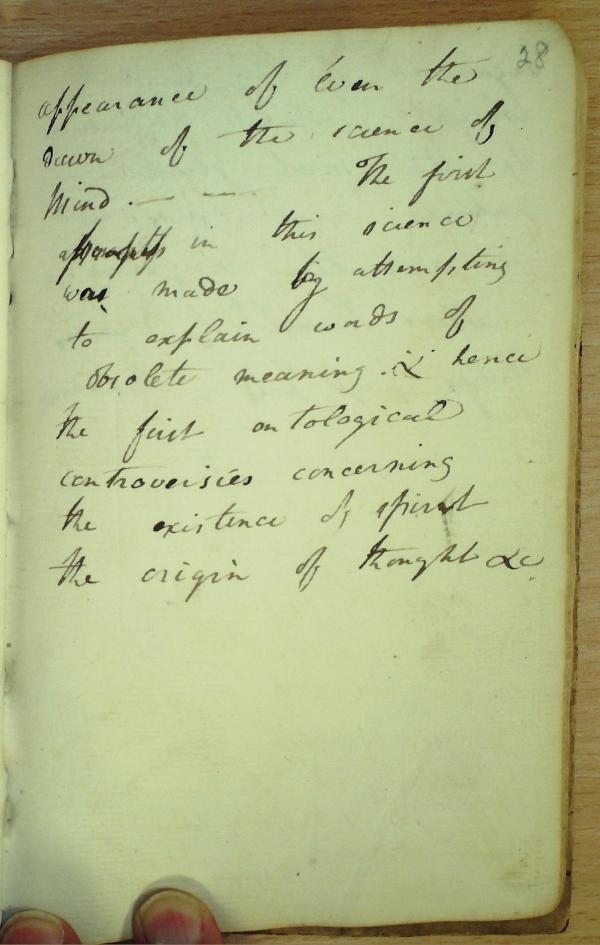 28
appearance of Even the
dawn of the science of
Mind. — — The first
in this science
was made by attempting
to explain words of
obsolete meaning. & hence
the first ontological
controversies concerning
the existence of spirit
the origin of thought &c